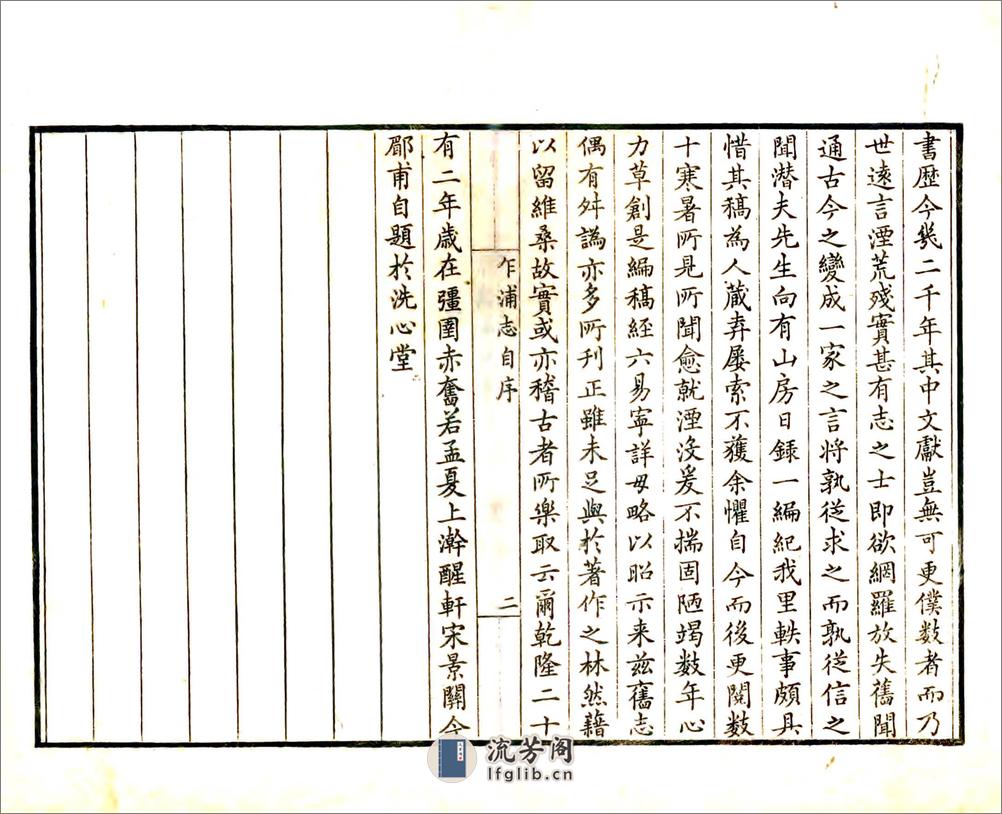 書歷今㡬二千年其中文獻豈無可更僕数者而乃
世逺言湮荒殘實甚有志之士即欲網羅放失舊聞
通古今之變成一家之言将孰從求之而孰從信之
聞潜夫先生向有山房日録一編紀我里軼事頗具
惜其稿為人蔵弆屡索不獲余懼自今而後更閱数
十寒暑所見所聞愈就湮没爰不揣固陋竭数年心
力草創是編稿經六易寧詳毋略以昭示来兹舊志
偶有舛譌亦多所刊正雖未足與於著作之林然藉
以留維桑故實或亦稽古者所樂取云爾乾隆二十
乍浦志自序
二
有二年歳在彊圉赤奮若孟夏上澣醒軒宋景關今
郿甫自題於洗心堂
流芳阁
lfglib.cn